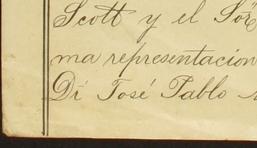 Scott y el Sör
ma representacion
Dí José Pablo